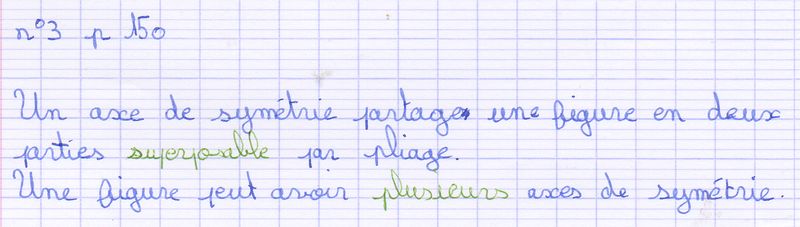 n°3 p 150
Un axe de symétrie partage une figure en deux
parties superposable par pliage.
Une figure peut avoir plusieurs axes de symétrie.